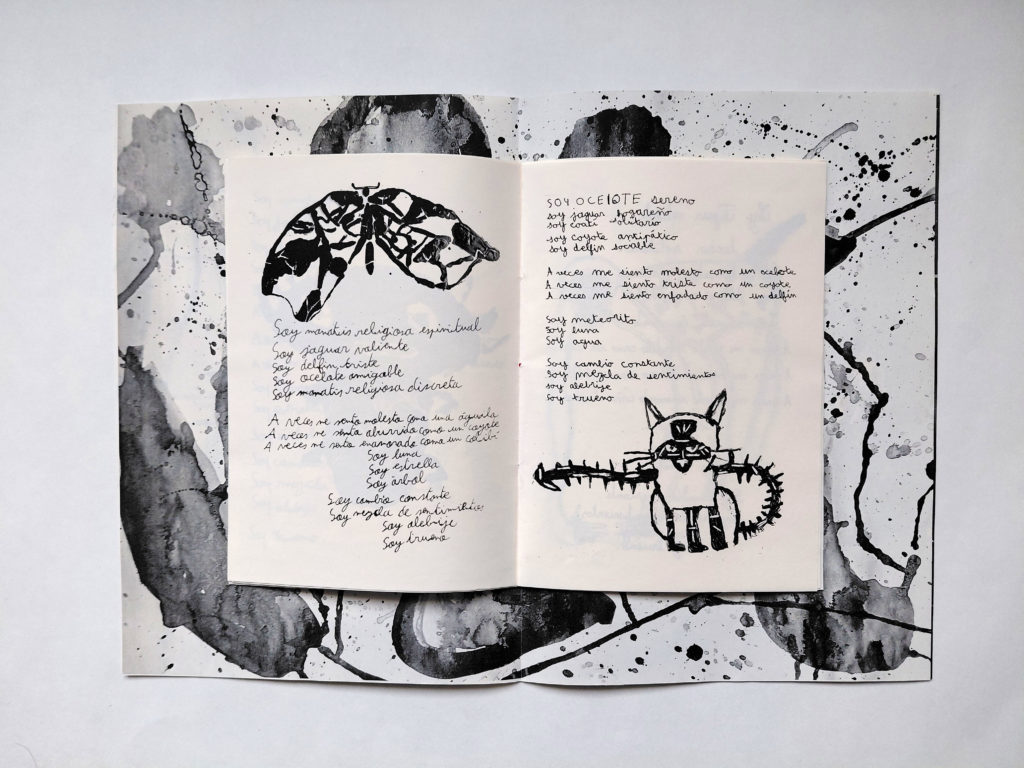 Soy manatis religiosa espiritual
Soy jaguar valiente
Soy delfin triste
Soy ocelate amigable
Soy manatis religiosa discreta
A veces me sento molesta coma una águila
A veces me senta aburrido como un coyote
A veces me sento enamorado coma un colibí
Soy luna
Soy estrella
Soy arbol
Soy cambio constante
Soy mezcla de sentimientos
Soy alebrije
Soy trueno
SOY OCElOTE sereno
soy jaguar hogareño
soy coati solitario
soy coyote antipático
soy delfin sociable
A veces me siento molesto como un ocelote
A veces me siento triste como un coyote
A veces me siento enfadado como un delfin
Soy meteorito
Soy luna
Soy agua
Soy cambio constante
Soy mezcla de sentimientos
soy alebrije
Soy trueno